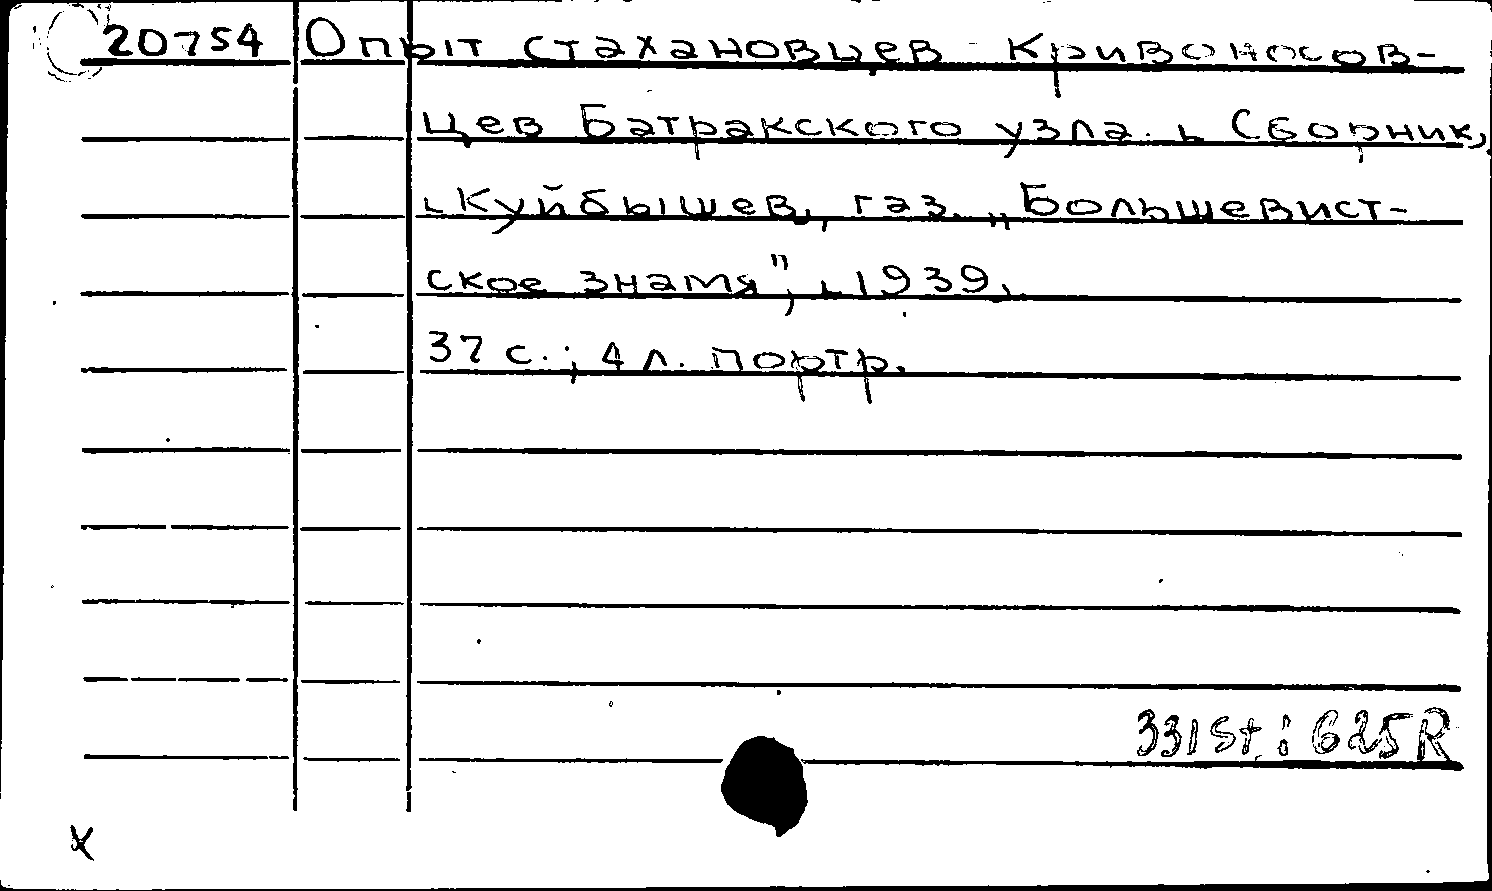 20754 Опыт стахановцев - кривоносов-
цев Батракского узла. Сборник,
Куйбышев, газ. „Большевист-
ское знамя", 1939.
37 с.; 4 л. портр.
331St : 625R
x